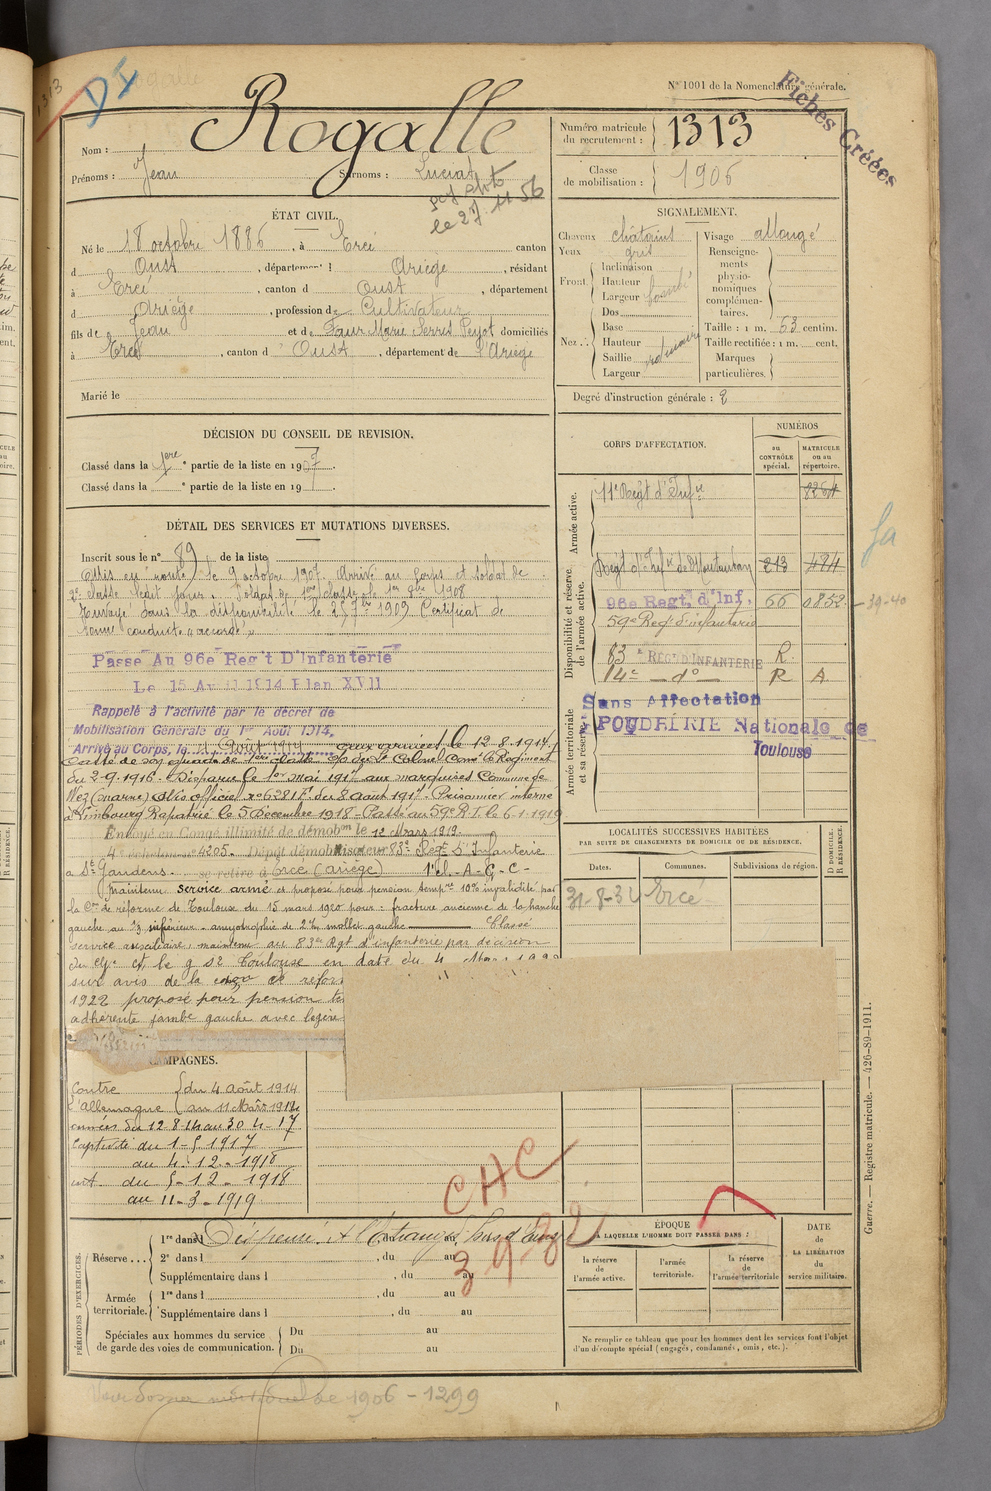 N° 1001 de la Nomenclature générale.
Fiches Créées
1313
Nom : Rogalle
Prénoms : Jean Surnoms :
le 27.11.56
Numéro matricule du recrutement : 1313
Classe de mobilisation : 1906
ÉTAT CIVIL.
Né le 18 octobre 1886, à Ercé canton
d Oust, département d Ariège, résidant
à Ercé, canton d Oust, département
d Ariège, profession de Cultivateur
fils de Jean et de Faur Marie domiciliés
à Ercé, canton d Oust, département de l'Ariège
Marié le
SIGNALEMENT.
Cheveux chatains Visage allongé
Yeux gris
Front. Inclinaison Hauteur Largeur bombé
Nez. Dos Base Hauteur Saillie Largeur ordinaire
Renseignements physionomiques complémentaires.
Taille : 1 m. 63 centim.
Taille rectifiée : 1 m. cent.
Marques particulières.
Degré d'instruction générale : 2
DÉCISION DU CONSEIL DE REVISION.
Classé dans la 1ère partie de la liste en 1907
Classé dans la e partie de la liste en 19
CORPS D'AFFECTATION.
NUMÉROS
au CONTRÔLE spécial.
MATRICULE ou au répertoire.
Armée active.
11e Régt d'Infie
Disponibilité et réserve de l'armée active.
Régt d'Infie de Montauban 213 484
96e Regt, d'Inf, 66 0852 - 39-40
59e Regt d'infanterie
83e REGt D'INFANTERIE R.
14e - do - R A
Armée territoriale et sa réserve.
Sans Affectation
POUDRERIE Nationale de Toulouse
DÉTAIL DES SERVICES ET MUTATIONS DIVERSES.
Inscrit sous le n° 89 de la liste
Mis en route le 9 octobre 1907. Arrivé au Corps et soldat de
2e classe ledit jour. Soldat de 1ère classe le 1er 1908
Renvoyé dans la disponibilité le 25 7bre 1909 Certificat de
bonne conduite "accordé"
Passé Au 96e Reg't D'Infanterie
Le 15 Avril 1914 Plan XVII
Rappelé à l'activité par le décret de
Mobilisation Générale du 1er Août 1914,
Arrivé au Corps, le Août 1914 le 12.8.1914.
Cassé de son grade de 1ère classe Colonel Comt le Régiment
du 2-9-1916. Disparu le 1er mai 1917 aux marquises Commune de
(Marne) avis officiel n° 6281 F. du 8 aout 1917. Prisonnier interné
à Limbourg Rapatrié le 5 Décembre 1918. Passé au 59e R.I. le 6-1-1919
Envoyé en Congé illimité de démobon le 12 Mars 1919.
4e échelon n° 4205. Dépôt démobilisateur 83e Regt D'Infanterie
à St Gaudens. se retire à Ercé (Ariège) - A - C - C -
Maintenu service armé et proposé pour pension tempre 10% invalidité par
la Con de réforme de Toulouse du 15 mars 1920 pour : fracture ancienne de la hanche
gauche au 1/3 inférieur - amyotrophie de 2 % mollet gauche Classé
service auxiliaire, maintenu au 83e Rgt d'infanterie par décision
Toulouse en date du 4 Mars 1922
sur avis de la
1922 proposé pour pension
adherente jambe gauche avec legère
LOCALITÉS SUCCESSIVES HABITÉES
PAR SUITE DE CHANGEMENTS DE DOMICILE OU DE RÉSIDENCE.
Dates. Communes. Subdivisions de région. D DOMICILE. R RÉSIDENCE.
31-8-34 Ercé
CAMPAGNES.
Contre l'allemagne du 4 août 1914
au 11 Mars 1919
années du 12 8 14 au 30 4 - 17
Captivité du 1-5-1917
au 4-12-1918
int. du 5-12-1918
au 11-3-1919
CHC
39-82
PÉRIODES D'EXERCICES.
Réserve ... 1re dans l
2e dans l , du au
Supplémentaire dans l , du au
Armée territoriale. 1re dans l , du au
Supplémentaire dans l , du au
Spéciales aux hommes du service de garde des voies de communication. Du au
Du au
ÉPOQUE
À LAQUELLE L'HOMME DOIT PASSER DANS :
la réserve de l'armée active.
l'armée territoriale.
la réserve de l'armée territoriale
DATE de LA LIBÉRATION du service militaire.
Ne remplir ce tableau que pour les hommes dont les services font l'objet d'un décompte spécial (engagés, condamnés, omis, etc.).
Guerre. — Registre matricule. — 426-89-1911.
1906 - 1299